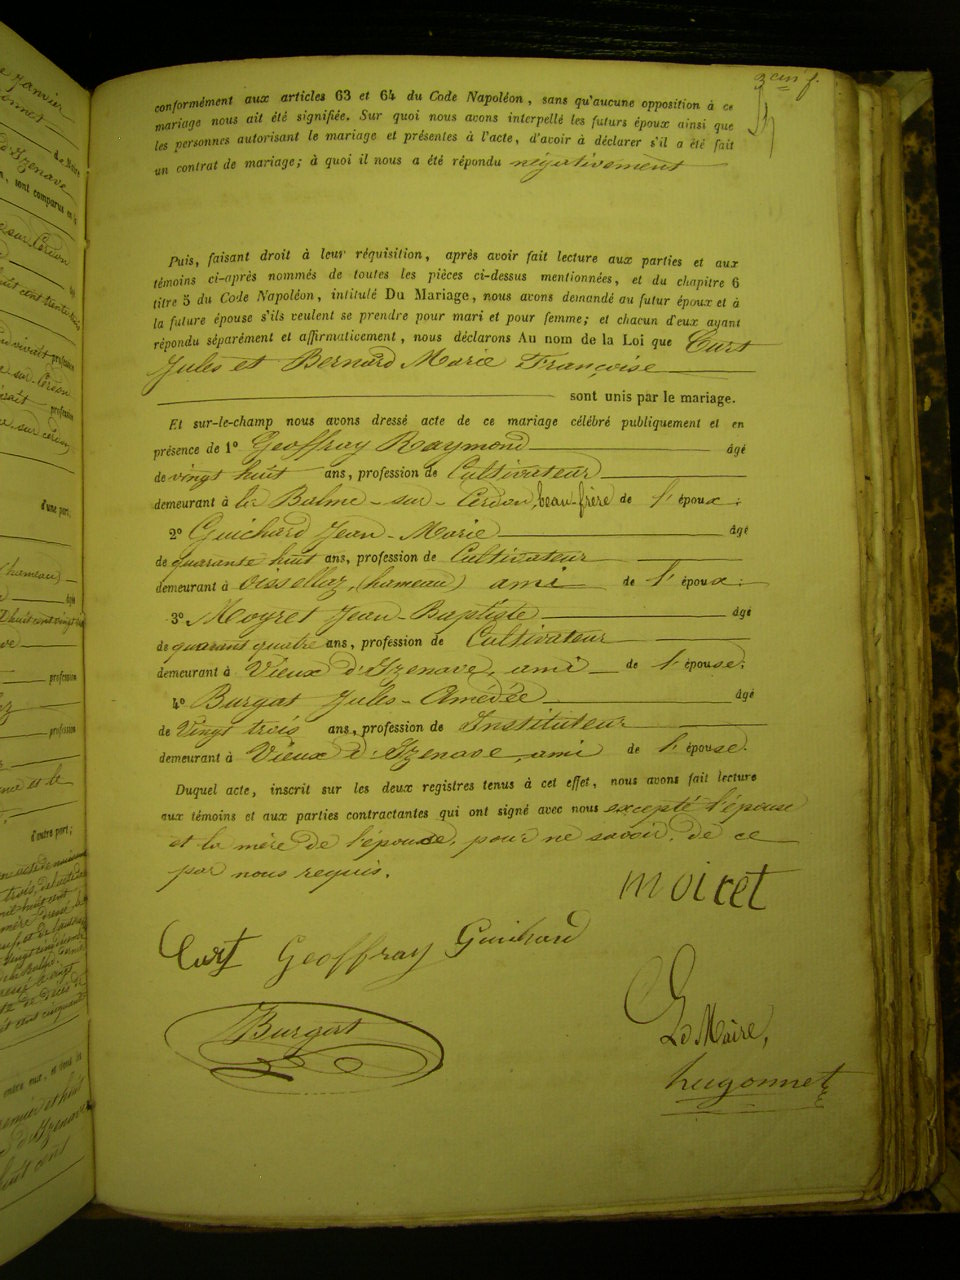 conformément aux articles 63 et 64 du Code Napoléon, sans qu'aucune opposition à ce
mariage nous ait été signifiée. Sur quoi nous avons interpellé les futurs époux ainsi que
les personnes autorisant le mariage et présentes à l'acte, d'avoir à déclarer s'il a été fait
un contrat de mariage; à quoi il nous a été répondu négativement
Puis, faisant droit à leur réquisition, après avoir fait lecture aux parties et aux
témoins ci-après nommés de toutes les pièces ci-dessus mentionnées, et du chapitre 6
titre 5 du Code Napoléon, intitulé Du Mariage, nous avons demandé au futur époux et à
la future épouse s'ils veulent se prendre pour mari et pour femme; et chacun d'eux ayant
répondu séparément et affirmativement, nous déclarons Au nom de la Loi que Curt
Jules et Bernard Marie Françoise
sont unis par le mariage.
Et sur-le-champ nous avons dressé acte de ce mariage célébré publiquement et en
présence de 1º Geoffray Raymond âgé
de vingt huit ans, profession de Cultivateur
demeurant à la Balme-sur-Cerdon, beau-frère de l'époux;
2º Guichard Jean-Marie âgé
de quarante huit ans, profession de Cultivateur
demeurant à oissellaz, (hameau) ami de l'époux;
3º Moyret Jean-Baptiste âgé
de quarant quatre ans, profession de Cultivateur
demeurant à Vieux d'Izenave, ami de l'épouse;
4º Burgat Jules-Amédée âgé
de Vingt trois ans, profession de Instituteur
demeurant à Vieux d'Izenave, ami de l'épouse.
Duquel acte, inscrit sur les deux registres tenus à cet effet, nous avons fait lecture
aux témoins et aux parties contractantes qui ont signé avec nous excepté l'épouse
et la mère de l'épouse, pour ne savoir, de ce
par nous requis.
moiret
Curt Geoffray Guichard
Burgat
Le Maire,
hugonnet